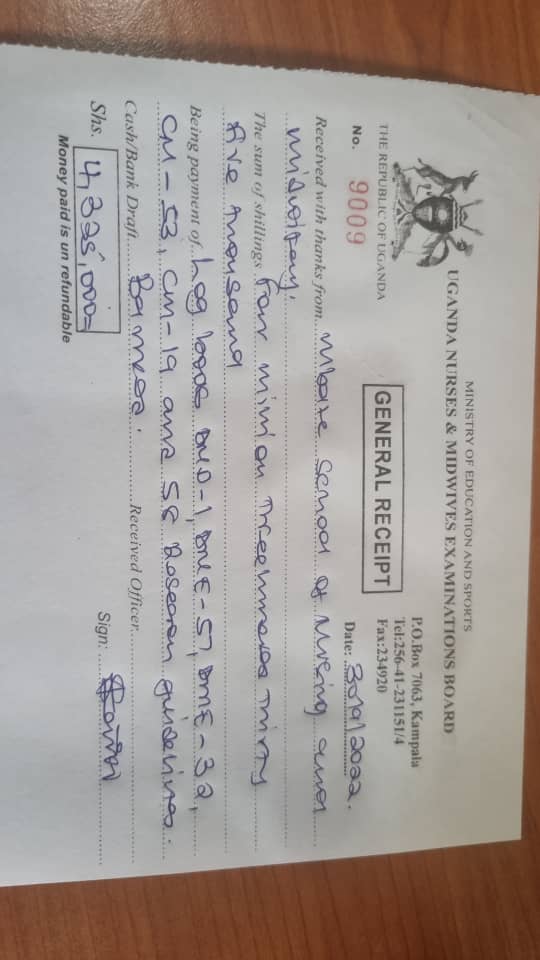 MINISTRY OF EDUCATION AND SPORTS
UGANDA NURSES & MIDWIVES EXAMINATIONS BOARD
THE REPUBLIC OF UGANDA
GENERAL RECEIPT
P.O.Box 7063, Kampala
Tel:256-41-231151/4
Fax:234920
No. 9009
Date: 30/9/2022.
Received with thanks from Mbale School of Nursing and
midwifery.
The sum of shillings Four million Threehundred Thirty
five thousand
Being payment of Log books DME-57, DME-32,
CM-53, CM-19 and 58 Research guidelines.
Cash/Bank Draft Received Officer.
Shs. 4,325,000= Sign:
Money paid is un refundable